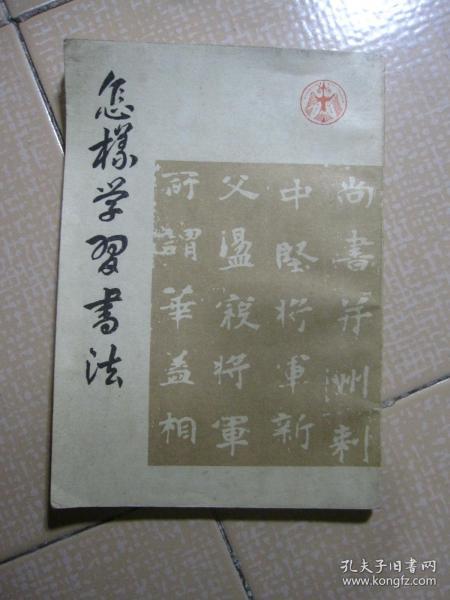 怎様学習書法
尚書并州刺
中堅将軍新
父温寂将軍
所謂華蓋相
孔夫子旧书网
www.kongfz.com